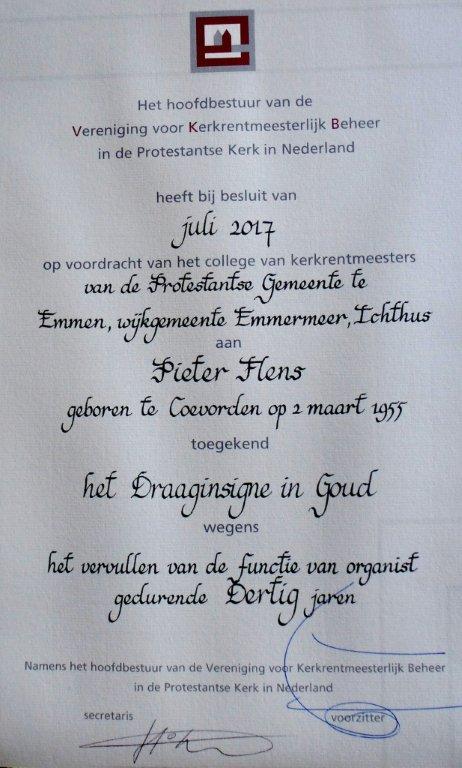 Het hoofdbestuur van de
Vereniging voor Kerkrentmeesterlijk Beheer
in de Protestantse Kerk in Nederland
heeft bij besluit van
juli 2017
op voordracht van het college van kerkrentmeesters
van de Protestantse Gemeente te
Emmen, wijkgemeente Emmermeer, Ichthus
aan
Pieter Flens
geboren te Coevorden op 2 maart 1955
toegekend
het Draaginsigne in Goud
wegens
het vervullen van de functie van organist
gedurende Dertig jaren
Namens het hoofdbestuur van de Vereniging voor Kerkrentmeesterlijk Beheer
in de Protestantse Kerk in Nederland
secretaris voorzitter